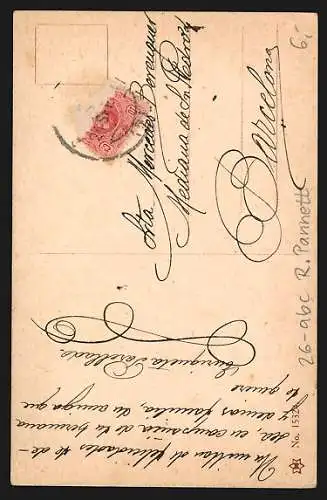 Srta Mercedes Berenguer
Mediana de Sn Pedro
Barcelona
Un millon de felicidades te de-
sea, en compañia de tu hermana
y demas familia, tu amiga que
te quiere
Enriqueta
No. 15326
26-96c R. Pannett
6,-